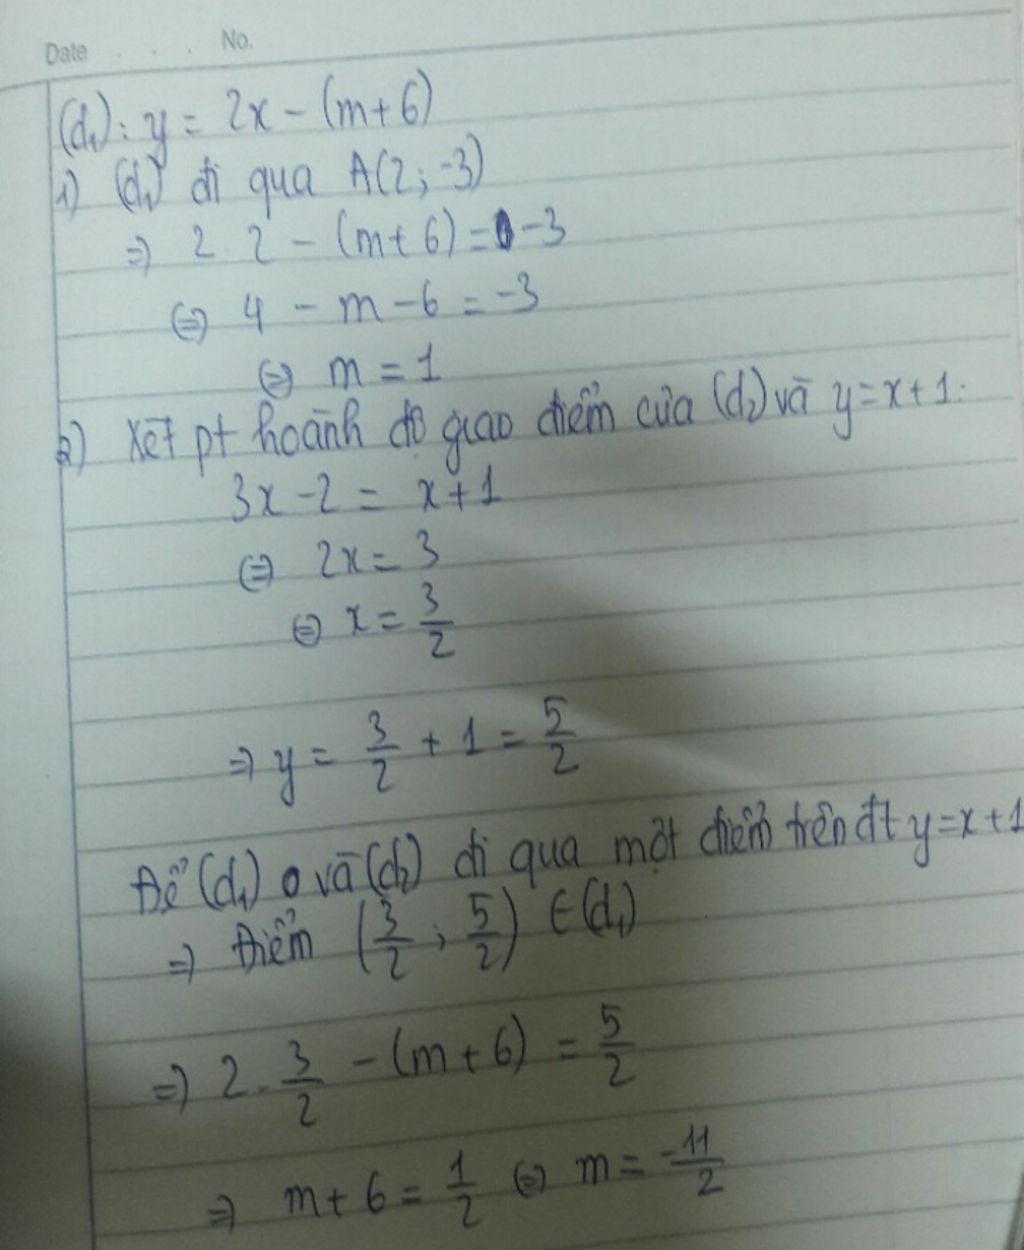 Date . . . No.
(d₁): y = 2x - (m+6)
1) (d₁) đi qua A(2; -3)
⇒ 2.2 - (m+6) = -3
⇔ 4 - m - 6 = -3
⇔ m = 1
2) Xét pt hoành độ giao điểm của (d₂) và y = x+1:
3x - 2 = x+1
⇔ 2x = 3
⇔ x = 3/2
⇒ y = 3/2 + 1 = 5/2
Để (d₁) và (d₂) đi qua một điểm trên đt y = x+1
⇒ Điểm (3/2 ; 5/2) ∈ (d₁)
⇒ 2. 3/2 - (m+6) = 5/2
⇒ m+6 = 1/2 ⇔ m = -11/2